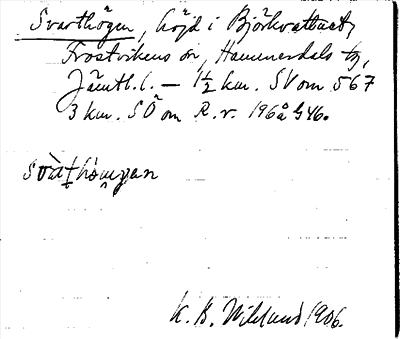 Svarthögen, höjd i Björkvattnet,
Frostvikens sn, Hammerdals tg,
Jämtl. l. – 1½ km. SV om 567
3 km. SÖ om R. r. 196 å G46.
K. B. Wiklund 1906.